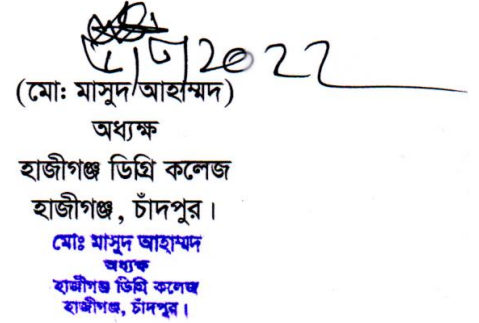 2022
(মোঃ মাসুদ আহাম্মদ)
অধ্যক্ষ
হাজীগঞ্জ ডিগ্রি কলেজ
হাজীগঞ্জ, চাঁদপুর।
মোঃ মাসুদ আহাম্মদ
অধ্যক্ষ
হাজীগঞ্জ ডিগ্রি কলেজ
হাজীগঞ্জ, চাঁদপুর।